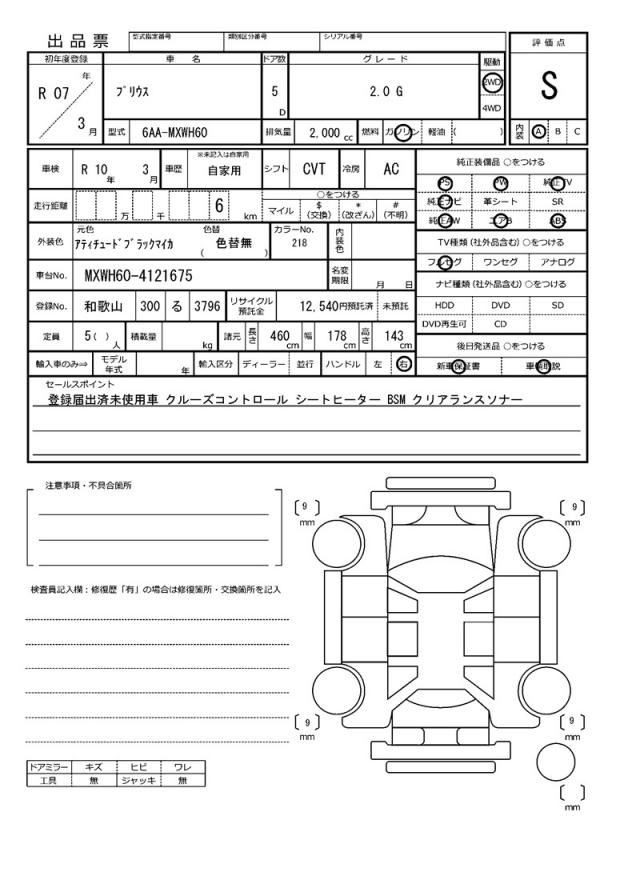 出品票 型式指定番号 類別区分番号 シリアル番号
評価点
初年度登録 車名 ドア数 グレード 駆動
R 07 年 3 月 ﾌﾟﾘｳｽ 5 D 2.0 G 2WD 4WD
S
型式 6AA-MXWH60 排気量 2,000 cc 燃料 ガソリン 軽油 ( )
内装 A B C
車検 R 10 年 3 月 車歴 ※未記入は自家用 自家用 シフト CVT 冷房 AC
純正装備品 ○をつける
PS PW 純正TV
純正ナビ 革シート SR
純正AW エアB ABS
走行距離 万 千 6 km ○をつける
マイル $ (交換) * (改ざん) # (不明)
外装色 元色 ｱﾃｨﾁｭｰﾄﾞﾌﾞﾗｯｸﾏｲｶ 色替 ( 色替無 ) カラーNo. 218 内装色
TV種類 (社外品含む) ○をつける
フルセグ ワンセグ アナログ
車台No. MXWH60-4121675 名変期限 月 日
ナビ種類 (社外品含む) ○をつける
HDD DVD SD
DVD再生可 CD
登録No. 和歌山 300 る 3796 リサイクル預託金 12,540円預託済 未預託
定員 5 ( ) 人 積載量 kg 諸元 長さ 460 cm 幅 178 cm 高さ 143 cm
後日発送品 ○をつける
新車保証書 車輌取説
輸入車のみ⇒ モデル年式 年 輸入区分 ディーラー 並行 ハンドル 左 右
セールスポイント
登録届出済未使用車 クルーズコントロール シートヒーター BSM クリアランスソナー
注意事項・不具合箇所
検査員記入欄：修復歴「有」の場合は修復箇所・交換箇所を記入
[ 9 ] mm
[ 9 ] mm
[ 9 ] mm
[ 9 ] mm
[ ] mm
ドアミラー キズ ヒビ ワレ
工具 無 ジャッキ 無